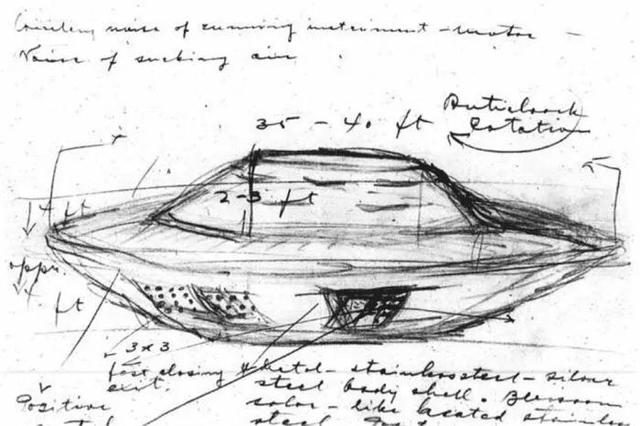 noise of running instrument - motor -
Noise of sucking air
Anticlock
rotation
35 - 40 ft
2-3 ft
4 ft
appr.
4 ft
3x3
fast closing
exit.
Metal - stainless steel - silver
steel body shell. Blossom
color - like heated stainless
steel
Positive